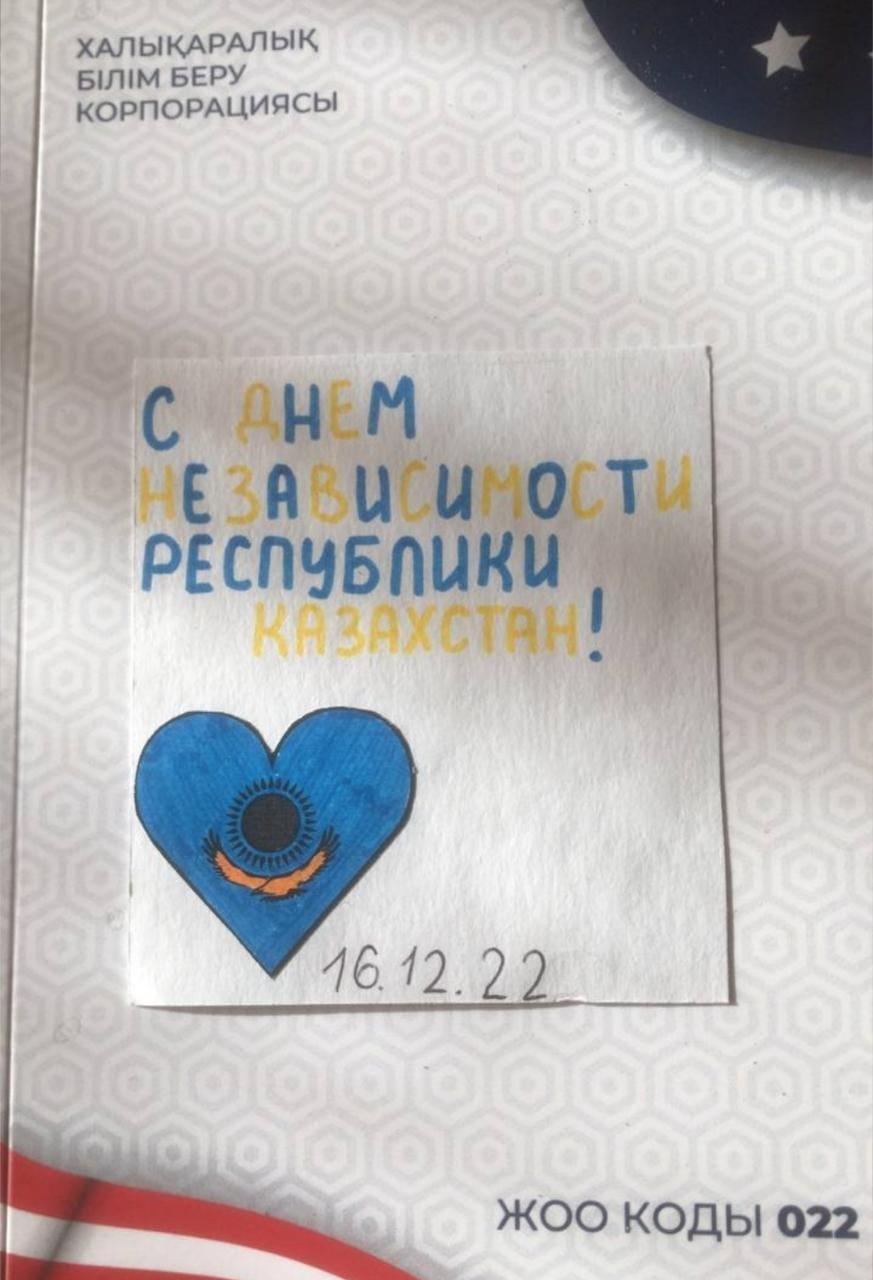 ХАЛЫҚАРАЛЫҚ
БІЛІМ БЕРУ
КОРПОРАЦИЯСЫ
С ДНЕМ
НЕЗАВИСИМОСТИ
РЕСПУБЛИКИ
КАЗАХСТАН!
16.12.22
ЖОО КОДЫ 022